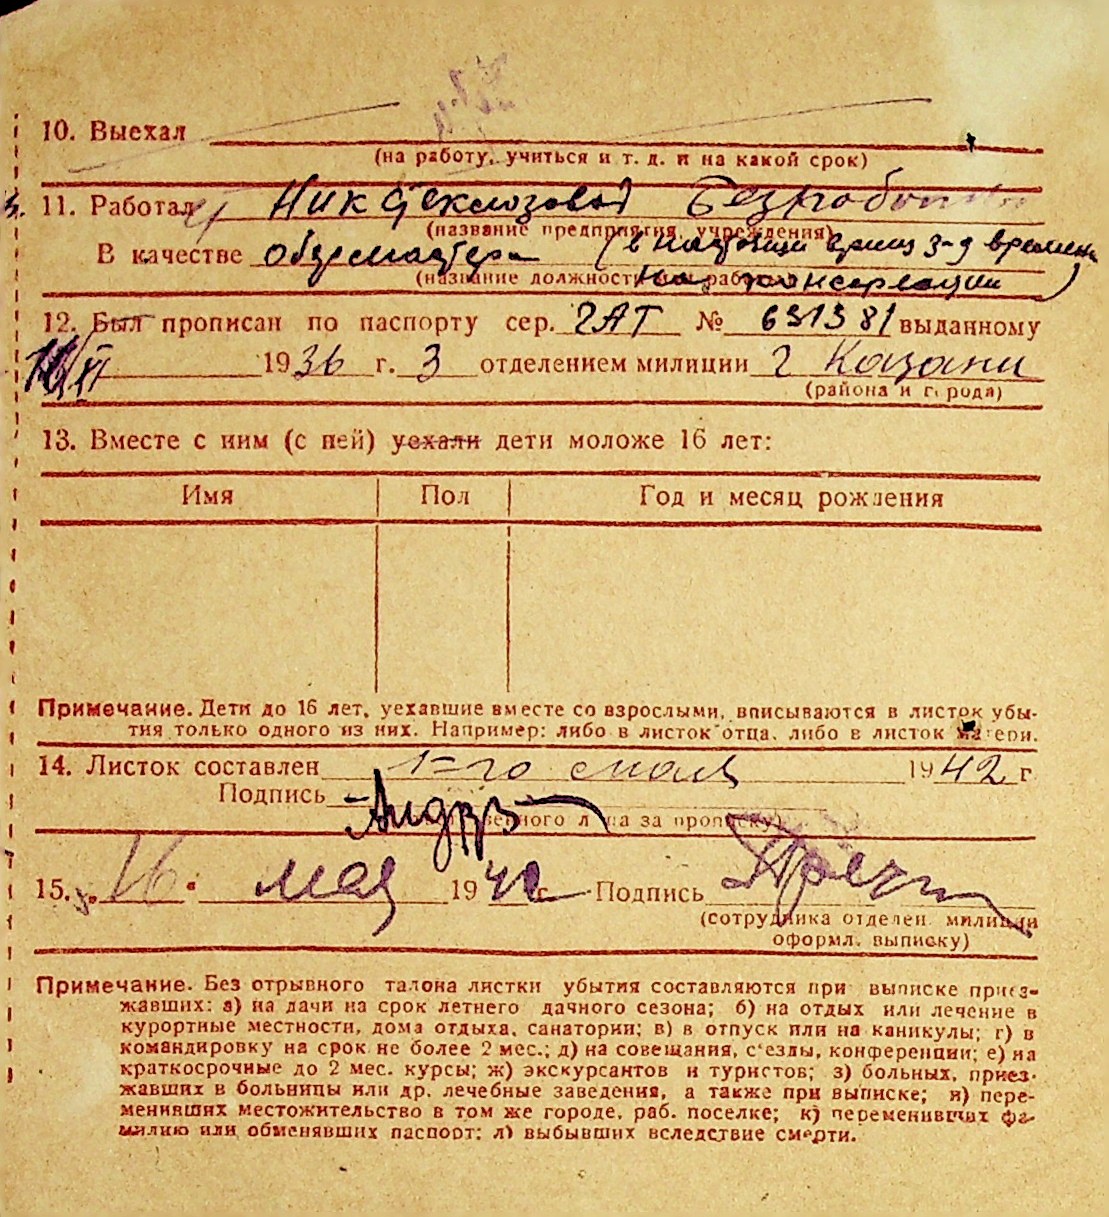 10. Выехал
(на работу, учиться и т. д. и на какой срок)
11. Работал Ник стеклозавод
(название предприятия, учреждения)
В качестве
(название должности или работы)
12. Был прописан по паспорту сер. ЧАТ № 631381 выданному
1936 г. 3 отделением милиции г Казани
(района и города)
13. Вместе с ним (с ней) уехали дети моложе 16 лет:
Имя Пол Год и месяц рождения
Примечание. Дети до 16 лет, уехавшие вместе со взрослыми, вписываются в листок убы-
тия только одного из них. Например: либо в листок отца, либо в листок матери.
14. Листок составлен 1-го мая 1942 г
Подпись
ственного лица за прописку)
15. 16 мая 1942 г. Подпись
(сотрудника отделен. милиции
оформл. выписку)
Примечание. Без отрывного талона листки убытия составляются при выписке приез-
жавших: а) на дачи на срок летнего дачного сезона; б) на отдых или лечение в
курортные местности, дома отдыха, санатории; в) в отпуск или на каникулы; г) в
командировку на срок не более 2 мес.; д) на совещания, с‘езды, конференции; е) на
краткосрочные до 2 мес. курсы; ж) экскурсантов и туристов; з) больных, приез-
жавших в больницы или др. лечебные заведения, а также при выписке; и) пере-
менивших местожительство в том же городе, раб. поселке; к) переменивших фа-
милию или обменявших паспорт; л) выбывших вследствие смерти.